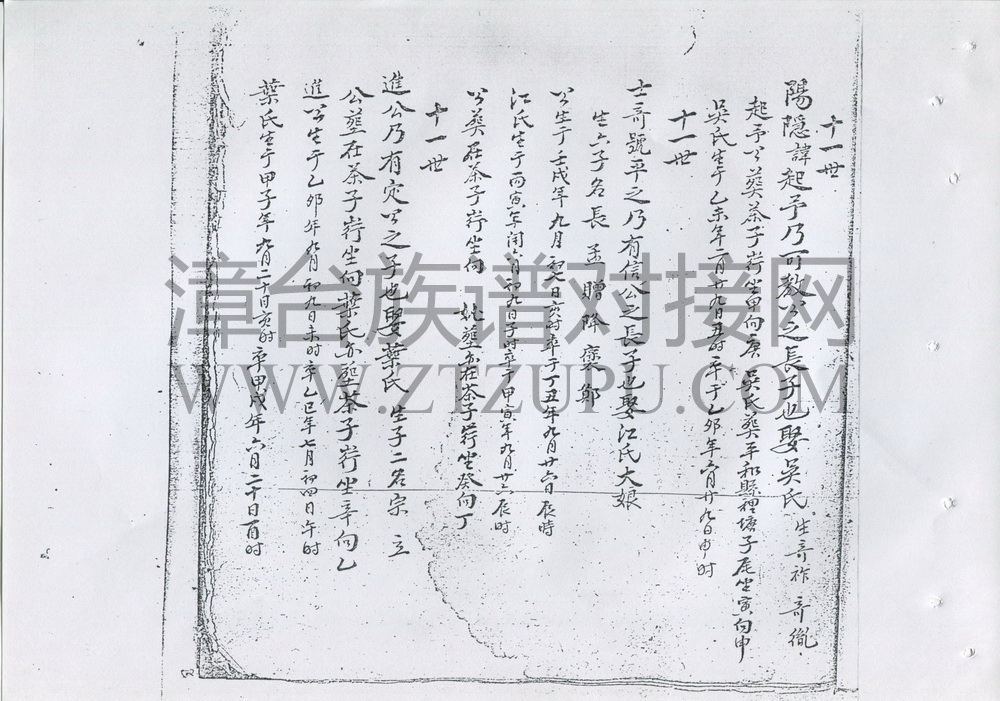 十一世
陽隱諱起予乃可教公之長子也娶吳氏 生奇祚 奇胤
起予公葬茶子岃坐甲向庚 吳氏葬平和縣裡塘子尾坐寅向申
吳氏生于乙未年二月廿九日丑時卒于乙卯年六月廿九日申时
十一世
士奇號平之乃有信公之長子也娶江氏大娘
生六子名長 孟 贈 降 寀 鄭
公生于壬戌年九月初七日亥时卒于丁丑年九月廿六日辰時
江氏生于丙寅年闰六月初九日子时卒于甲寅年九月廿六辰时
公葬在茶子岃坐向 妣塟亦在茶子岃坐癸向丁
十一世
進公乃有定公之子也娶葉氏 生子二名宗 立
公塟在茶子岃坐向葉氏亦塟茶子岃坐辛向乙
進公生于乙卯年九月初九日未时卒乙巳年七月初四日午时
葉氏生于甲子年九月二十日亥时卒甲戌年六月二十日酉时
漳台族谱对接网
WWW.ZTZUPU.COM